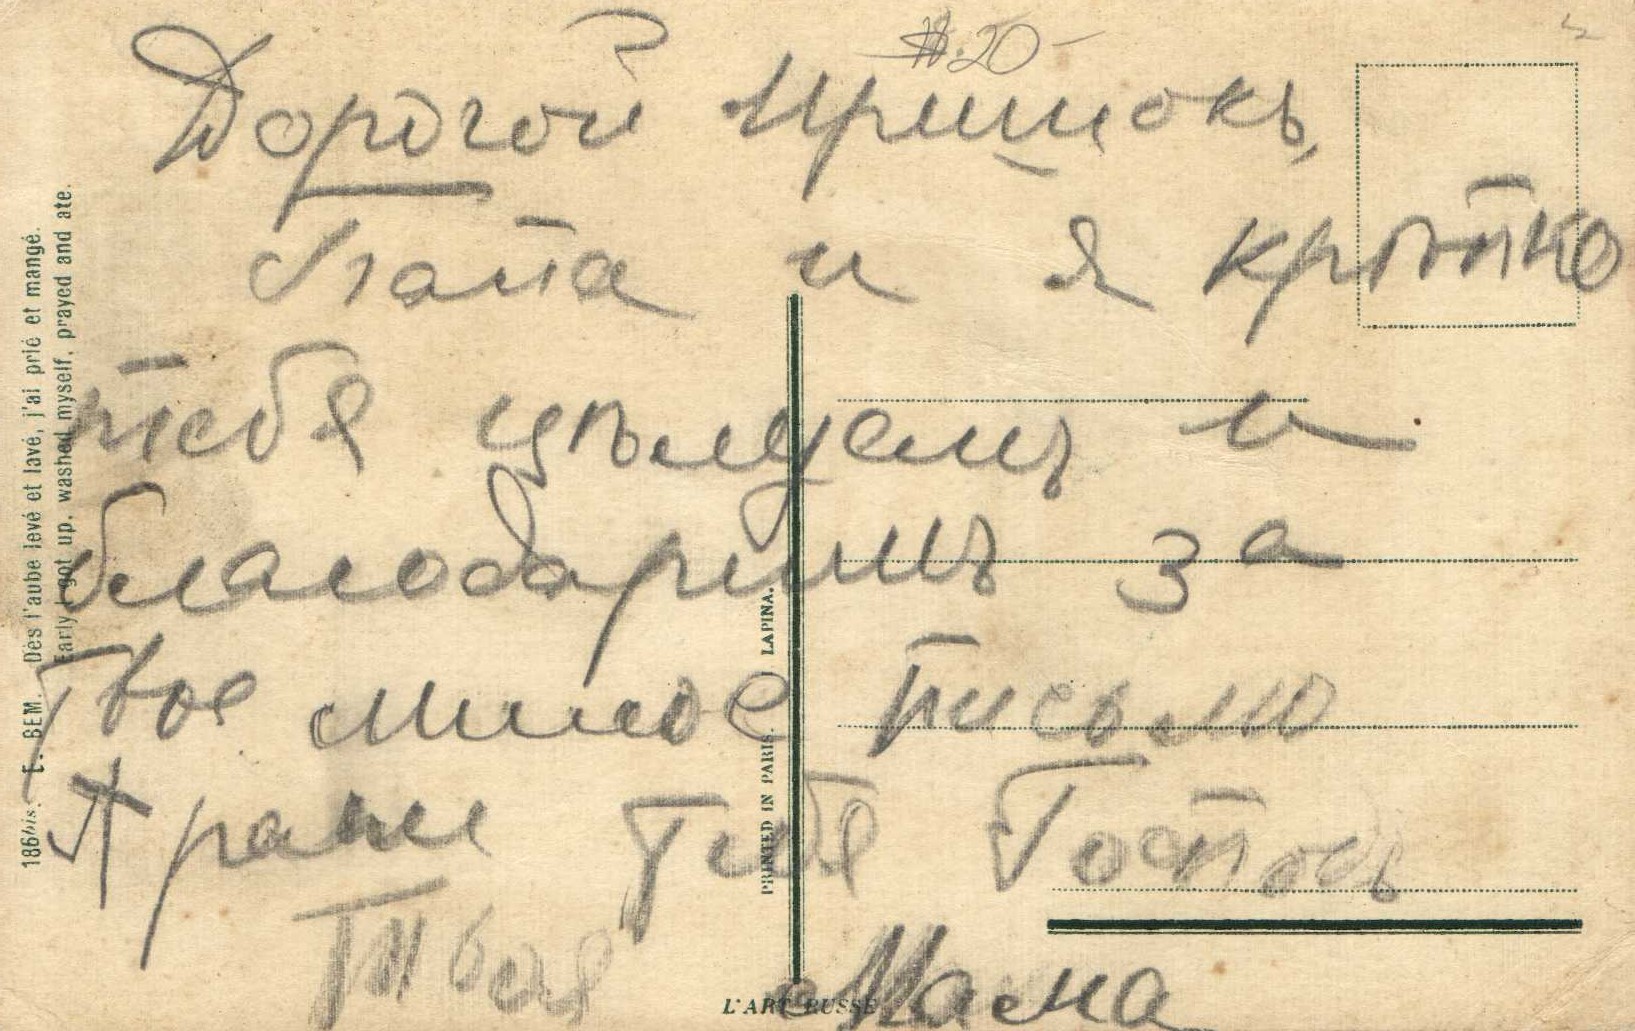 #.20-
Дорогой Иришокъ,
Папа и я крѣпко
тебя цѣлуемъ и
благодаримъ за
Твое милое письмо
Храни тебя Господь
Твоя Мама
186bis. E. BEM. Dès l'aube levé et lavé, j'ai prié et mangé.
Early I got up, washed myself, prayed and ate.
PRINTED IN PARIS. LAPINA.
L'ART RUSSE